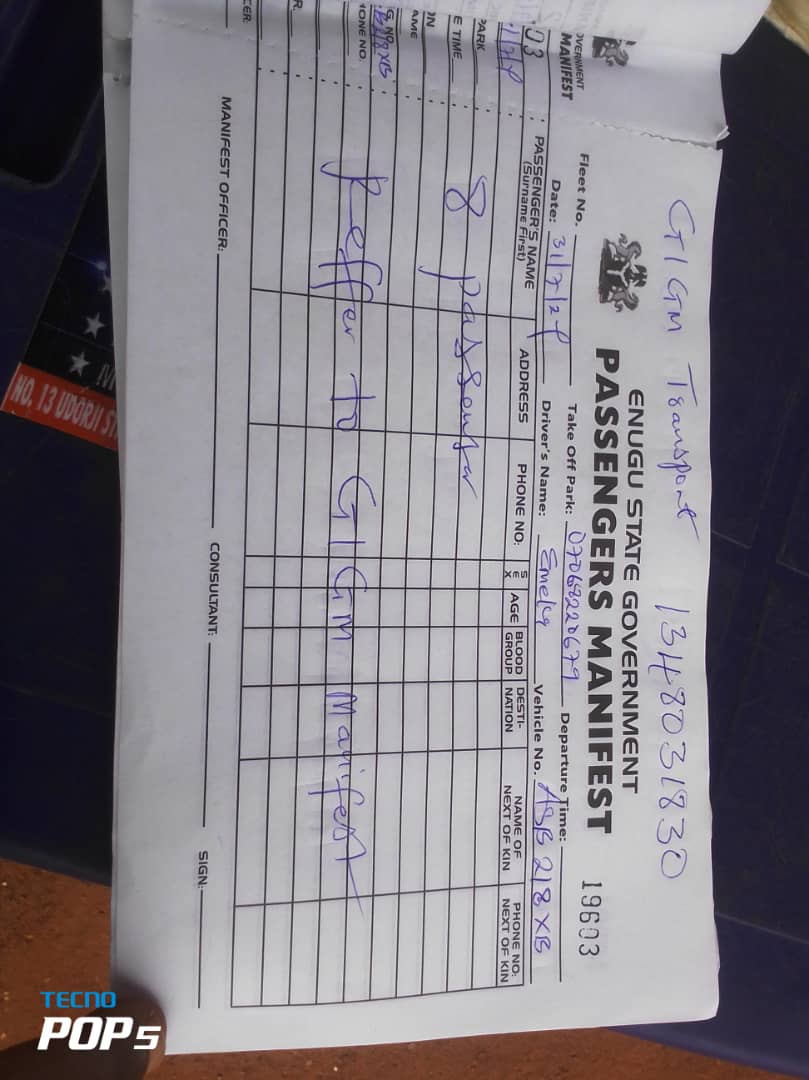 GIGM Transport 1348031830
ENUGU STATE GOVERNMENT
PASSENGERS MANIFEST
19603
Fleet No. Take Off Park: 07068220679 Departure Time:
Date: 31/7/24 Driver's Name: Emeka Vehicle No. ABB 218 XB
PASSENGER'S NAME (Surname First) ADDRESS PHONE NO: SEX AGE BLOOD GROUP DESTI-NATION NAME OF NEXT OF KIN PHONE NO: NEXT OF KIN
8 passenger
Reffer to GIGM Manifest
MANIFEST OFFICER: CONSULTANT: SIGN:
OVERNMENT
MANIFEST
03
PARK
E TIME
ON
AME
G. NO.
218XB
HONE NO.
R.
CER:
NO. 13 UDORJI ST
TECNO
POP 5